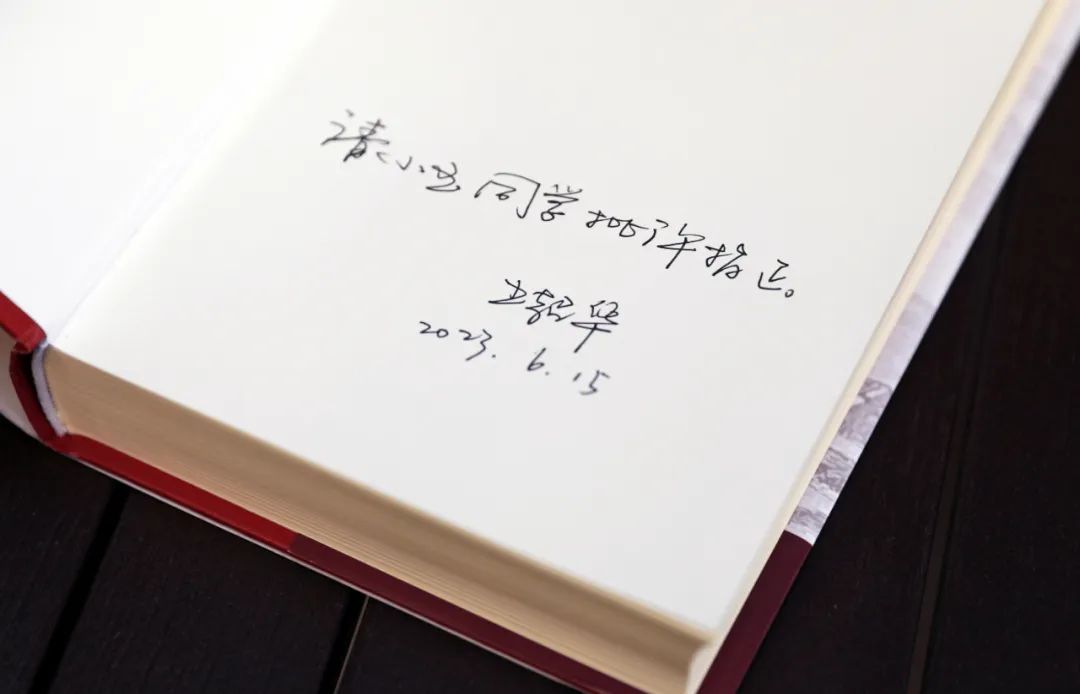 请小生同学批评指正。
王起华
2023.6.15